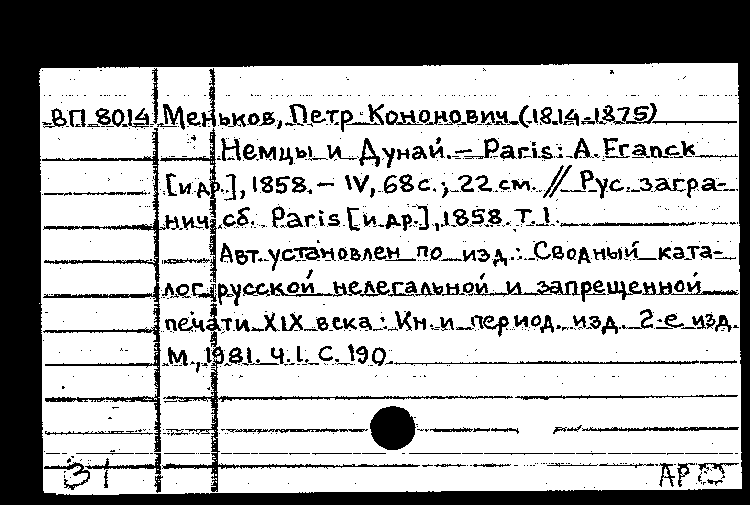 ВП 8014 Меньков, Петр Кононович (1814-1875)
Немцы и Дунай. — Paris: A. Franck
[и др.], 1858. — IV, 68 с.; 22 см. // Рус. загра-
нич. сб. Paris [и др.], 1858. Т. 1.
Авт. установлен по изд.: Сводный ката-
лог русской нелегальной и запрещенной
печати XIX века: Кн. и период. изд. 2-е изд.
М., 1981. Ч. 1. С. 190.
31 АР